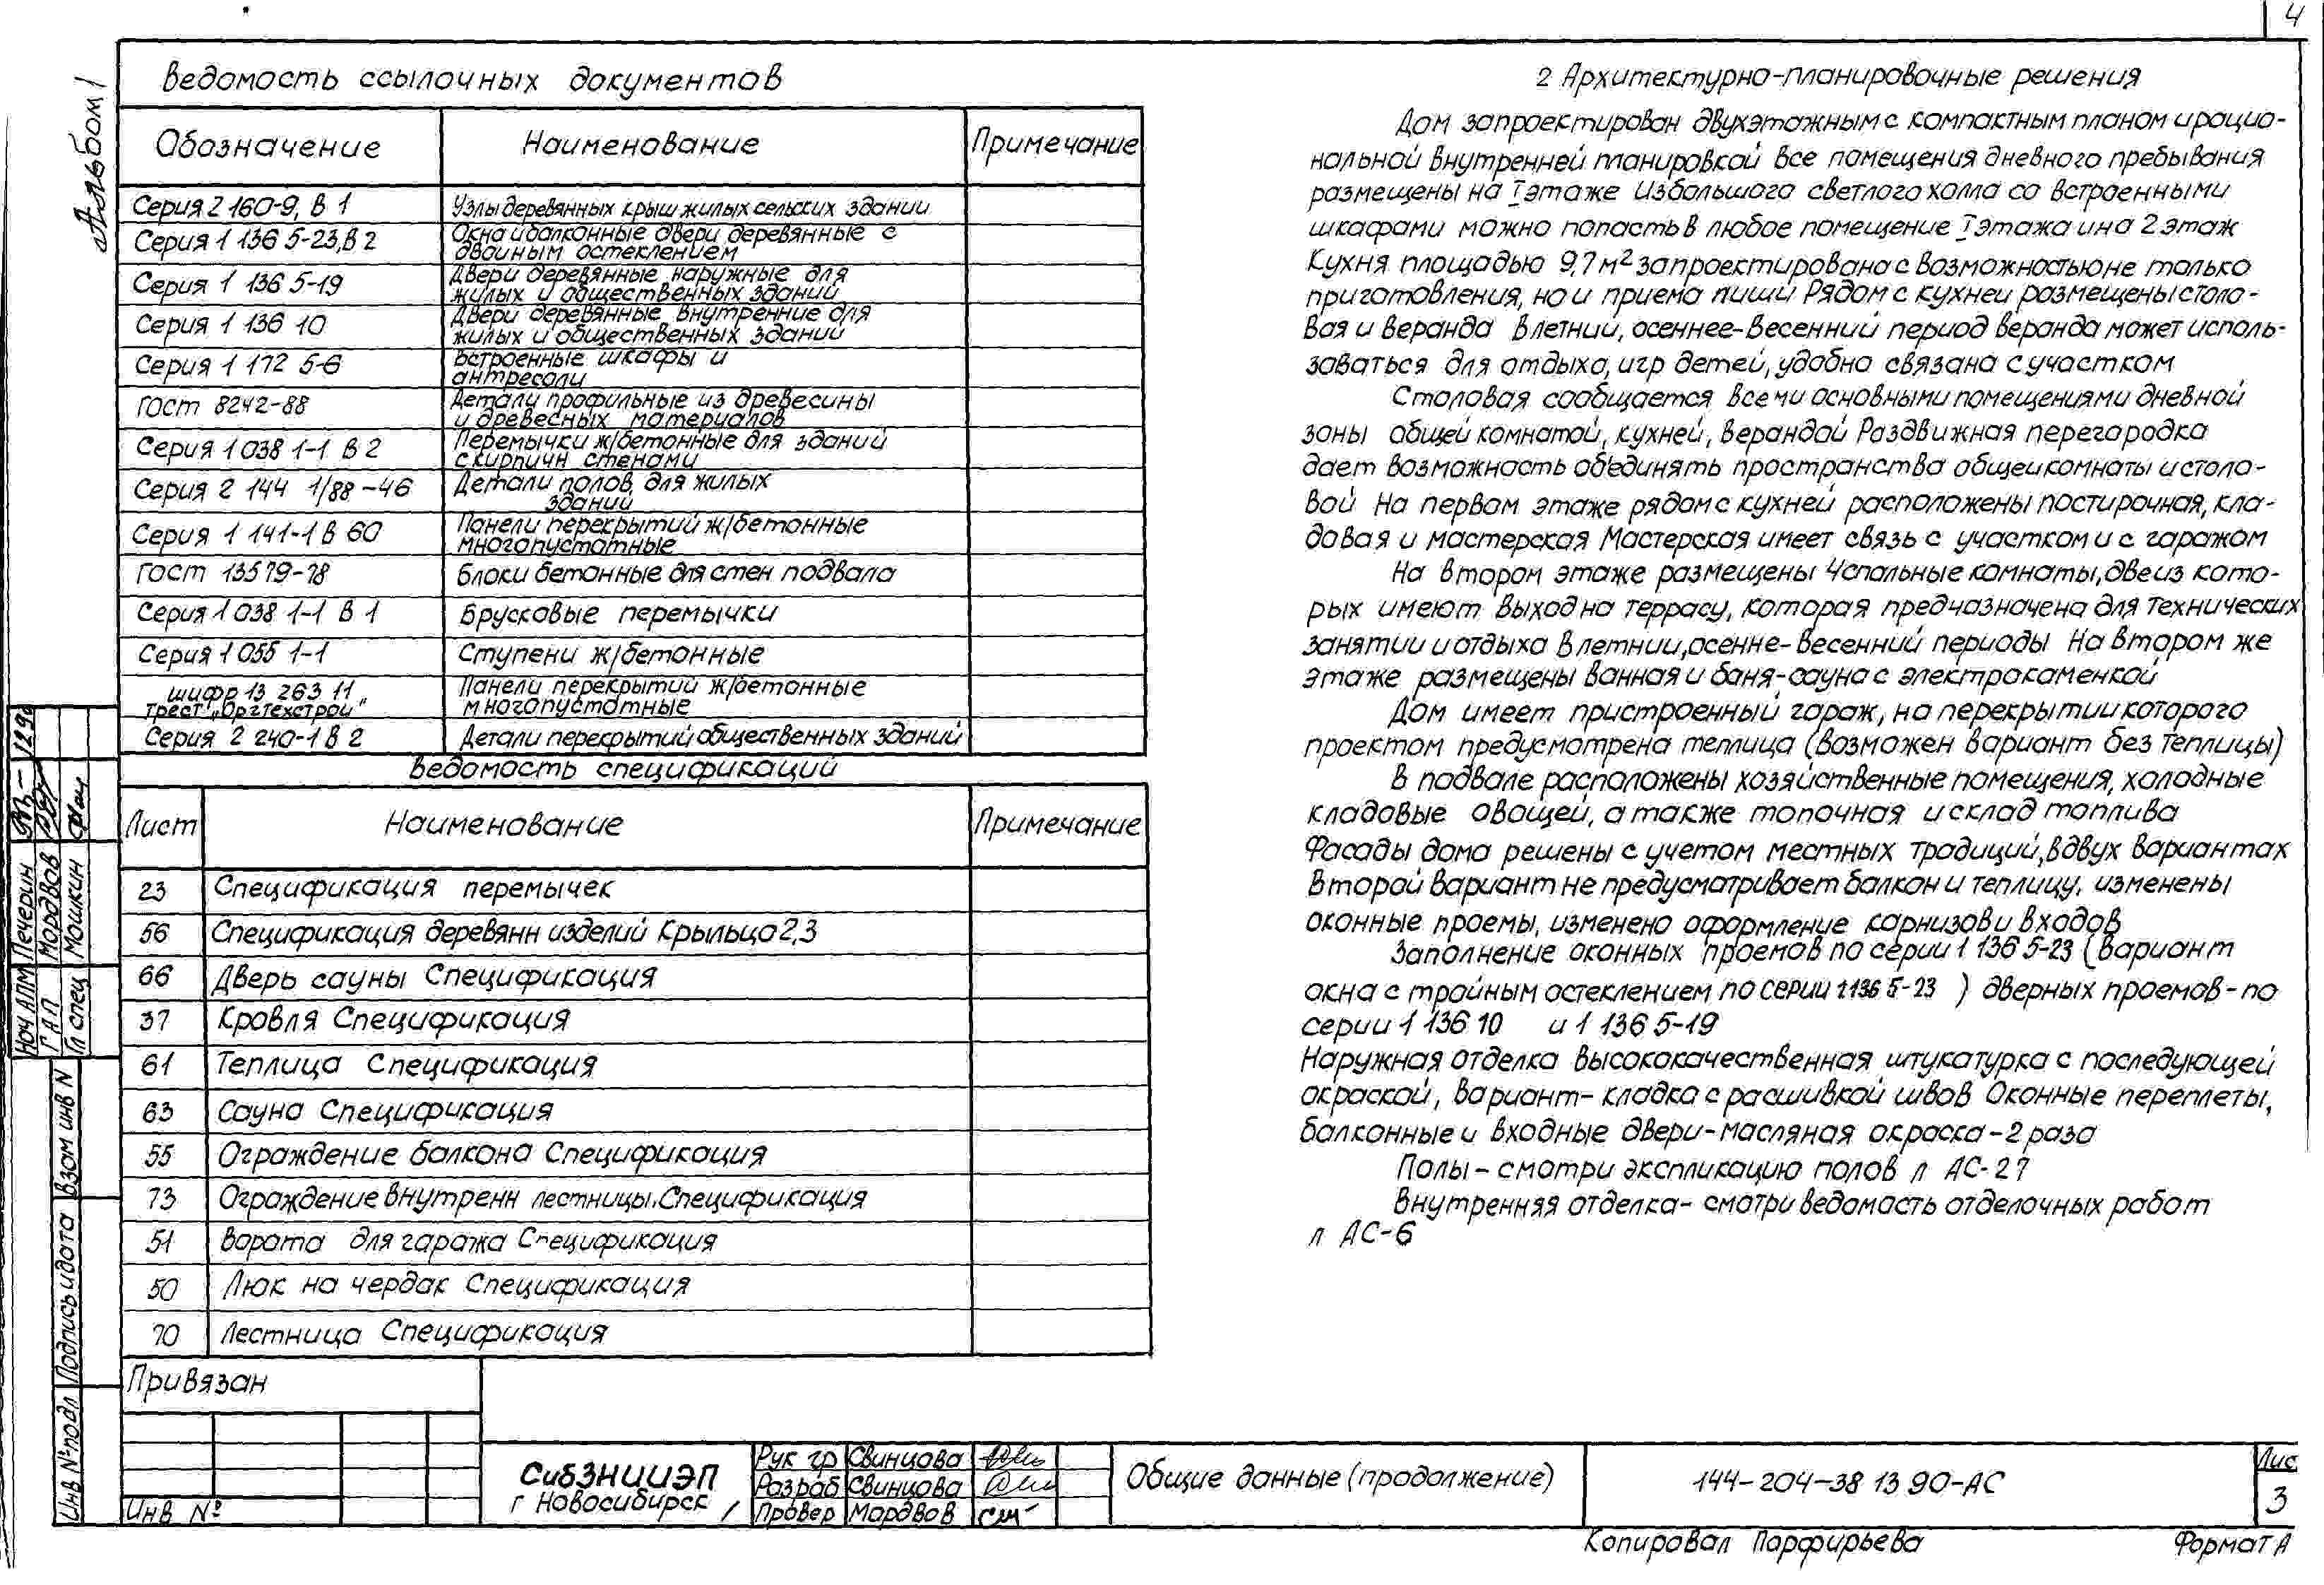 4
Альбом 1
Ведомость ссылочных документов
Обозначение Наименование Примечание
Серия 2 160-9, В 1 Узлы деревянных крыш жилых сельских здании
Серия 1 136 5-23, В 2 Окна и балконные двери деревянные с
двойным остеклением
Серия 1 136 5-19 Двери деревянные наружные для
жилых и общественных зданий
Серия 1 136 10 Двери деревянные внутренние для
жилых и общественных зданий
Серия 1 172 5-6 Встроенные шкафы и
антресоли
ГОСТ 8242-88 Детали профильные из древесины
и древесных материалов
Серия 1 038 1-1 В 2 Перемычки ж/бетонные для зданий
с кирпичн стенами
Серия 2 144 1/88-46 Детали полов для жилых
зданий
Серия 1 141-1 В 60 Панели перекрытий ж/бетонные
многопустотные
ГОСТ 13579-78 Блоки бетонные для стен подвала
Серия 1 038 1-1 В 1 Брусковые перемычки
Серия 1 055 1-1 Ступени ж/бетонные
шифр 13 263 11
трест „Оргтехстрой" Панели перекрытий ж/бетонные
многопустотные
Серия 2 240-1 В 2 Детали перекрытий общественных зданий
Ведомость спецификаций
Лист Наименование Примечание
23 Спецификация перемычек
56 Спецификация деревянн изделий Крыльца 2,3
66 Дверь сауны Спецификация
37 Кровля Спецификация
61 Теплица Спецификация
63 Сауна Спецификация
55 Ограждение балкона Спецификация
73 Ограждение внутренн лестницы. Спецификация
51 Ворота для гаража Спецификация
50 Люк на чердак Спецификация
70 Лестница Спецификация
2 Архитектурно-планировочные решения
Дом запроектирован двухэтажным с компактным планом и рацио-
нальной внутренней планировкой Все помещения дневного пребывания
размещены на I этаже Из большого светлого холла со встроенными
шкафами можно попасть в любое помещение I этажа и на 2 этаж
Кухня площадью 9,7 м² запроектирована с возможностью не только
приготовления, но и приема пищи Рядом с кухней размещены столо-
вая и веранда В летний, осеннее-весенний период веранда может исполь-
зоваться для отдыха, игр детей, удобно связана с участком
Столовая сообщается всеми основными помещениями дневной
зоны общей комнатой, кухней, верандой Раздвижная перегородка
дает возможность объединять пространства общей комнаты и столо-
вой На первом этаже рядом с кухней расположены постирочная, кла-
довая и мастерская Мастерская имеет связь с участком и с гаражом
На втором этаже размещены 4 спальные комнаты, две из кото-
рых имеют выход на террасу, которая предназначена для технических
занятий и отдыха в летний, осенне-весенний периоды На втором же
этаже размещены ванная и баня-сауна с электрокаменкой
Дом имеет пристроенный гараж, на перекрытии которого
проектом предусмотрена теплица (возможен вариант без теплицы)
В подвале расположены хозяйственные помещения, холодные
кладовые овощей, а также топочная и склад топлива
Фасады дома решены с учетом местных традиций, в двух вариантах
Второй вариант не предусматривает балкон и теплицу, изменены
оконные проемы, изменено оформление карнизов и входов
Заполнение оконных проемов по серии 1 136 5-23 (вариант
окна с тройным остеклением по серии 1 136 5-23 ) дверных проемов-по
серии 1 136 10 и 1 136 5-19
Наружная отделка высококачественная штукатурка с последующей
окраской, вариант- кладка с расшивкой швов Оконные переплеты,
балконные и входные двери-масляная окраска-2 раза
Полы-смотри экспликацию полов л АС-27
Внутренняя отделка- смотри ведомость отделочных работ
л АС-6
Нач АПМ Печерин
ГАП Мордвов
Гл спец Мошкин
Взам инв N
Подпись и дата
Инв № подл
Привязан
Инв №
СибЗНИИЭП
г Новосибирск
Рук гр Свинцова
Разраб Свинцова
Провер Мордвов
Общие данные (продолжение)
144-204-38 13 90-АС
Лис
3
Копировал Парфирьева
Формат А